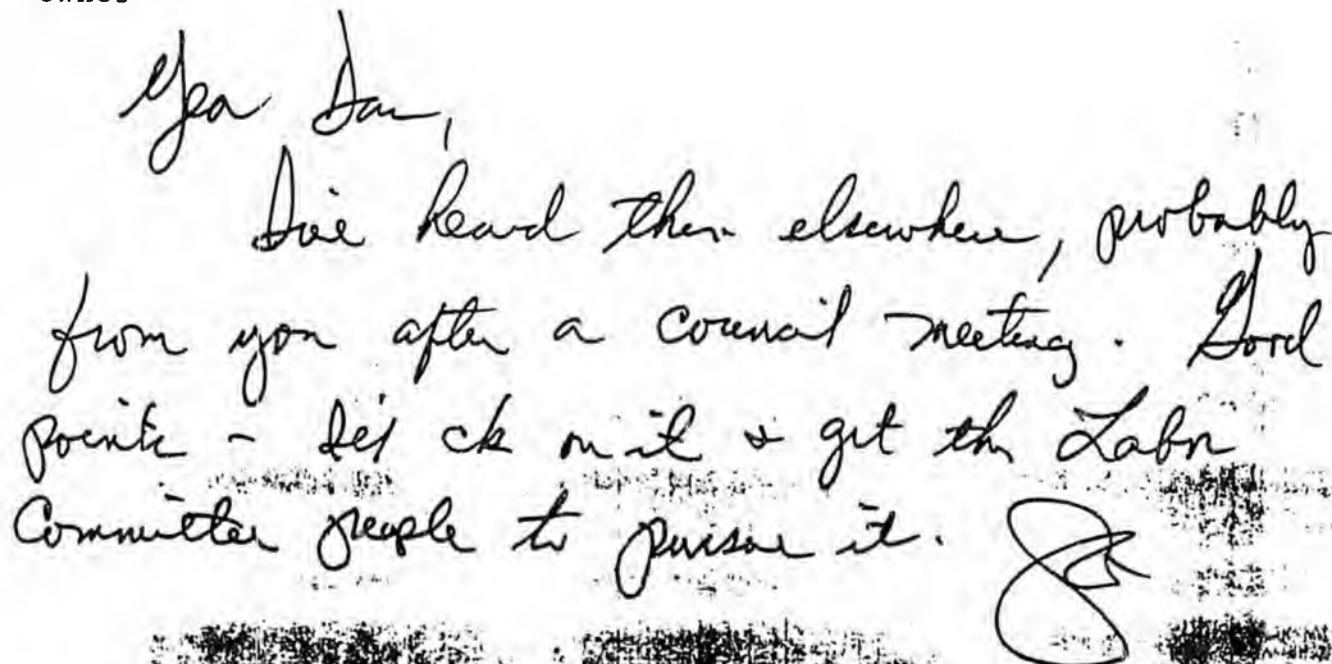 Yea Dan,
I've heard them elsewhere, probably
from you after a council meeting. Good
points - let's ck on it & get the Labor
Committee people to pursue it.